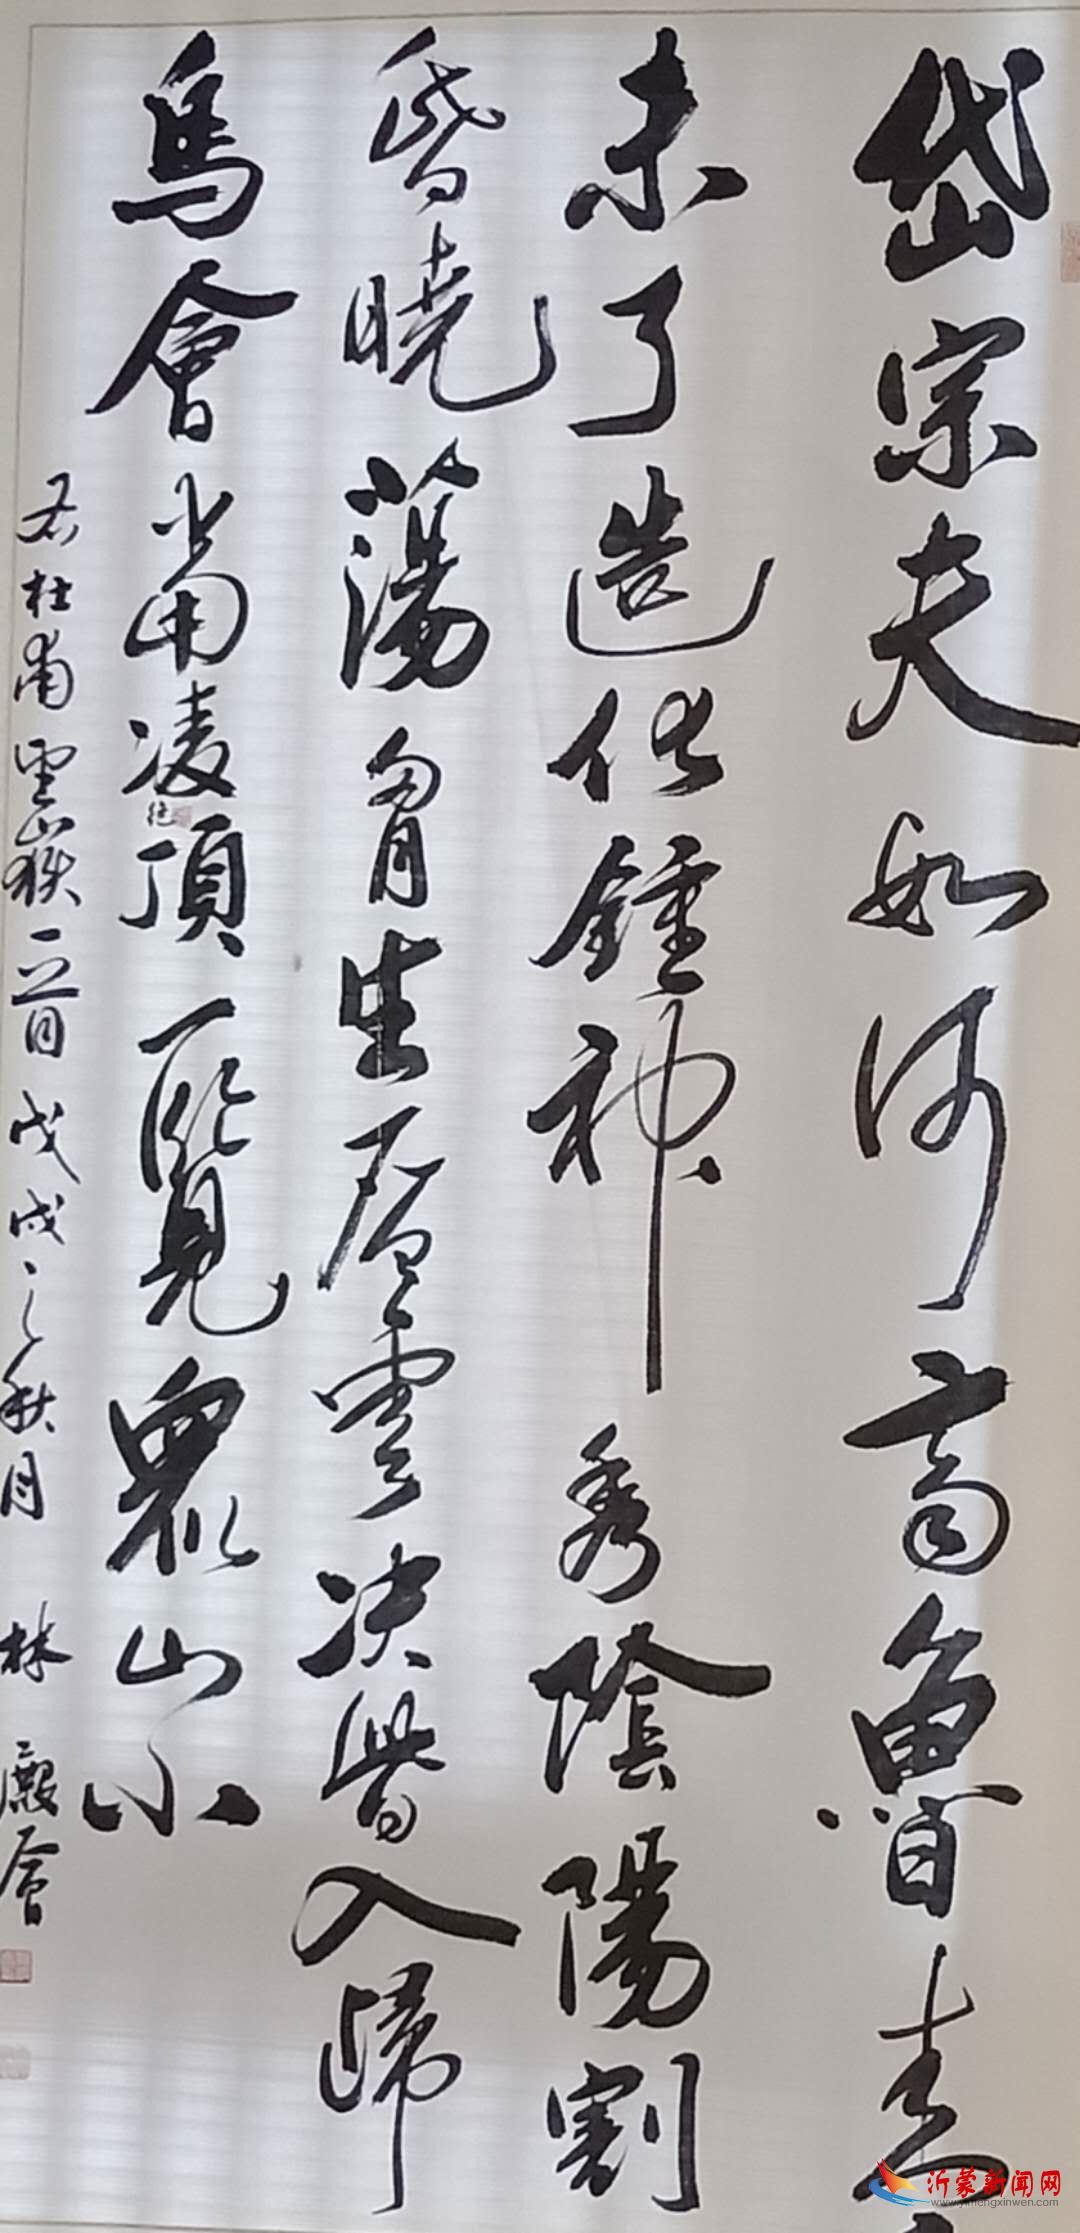 岱宗夫如何齊魯青
未了造化鍾神秀陰陽割
昏曉蕩胷生層雲決眥入歸
鳥會當凌頂一覽眾山小
絕
右杜甫望嶽一首戊戌之秋月 林
沂蒙新闻网
www.yimengxinwen.com